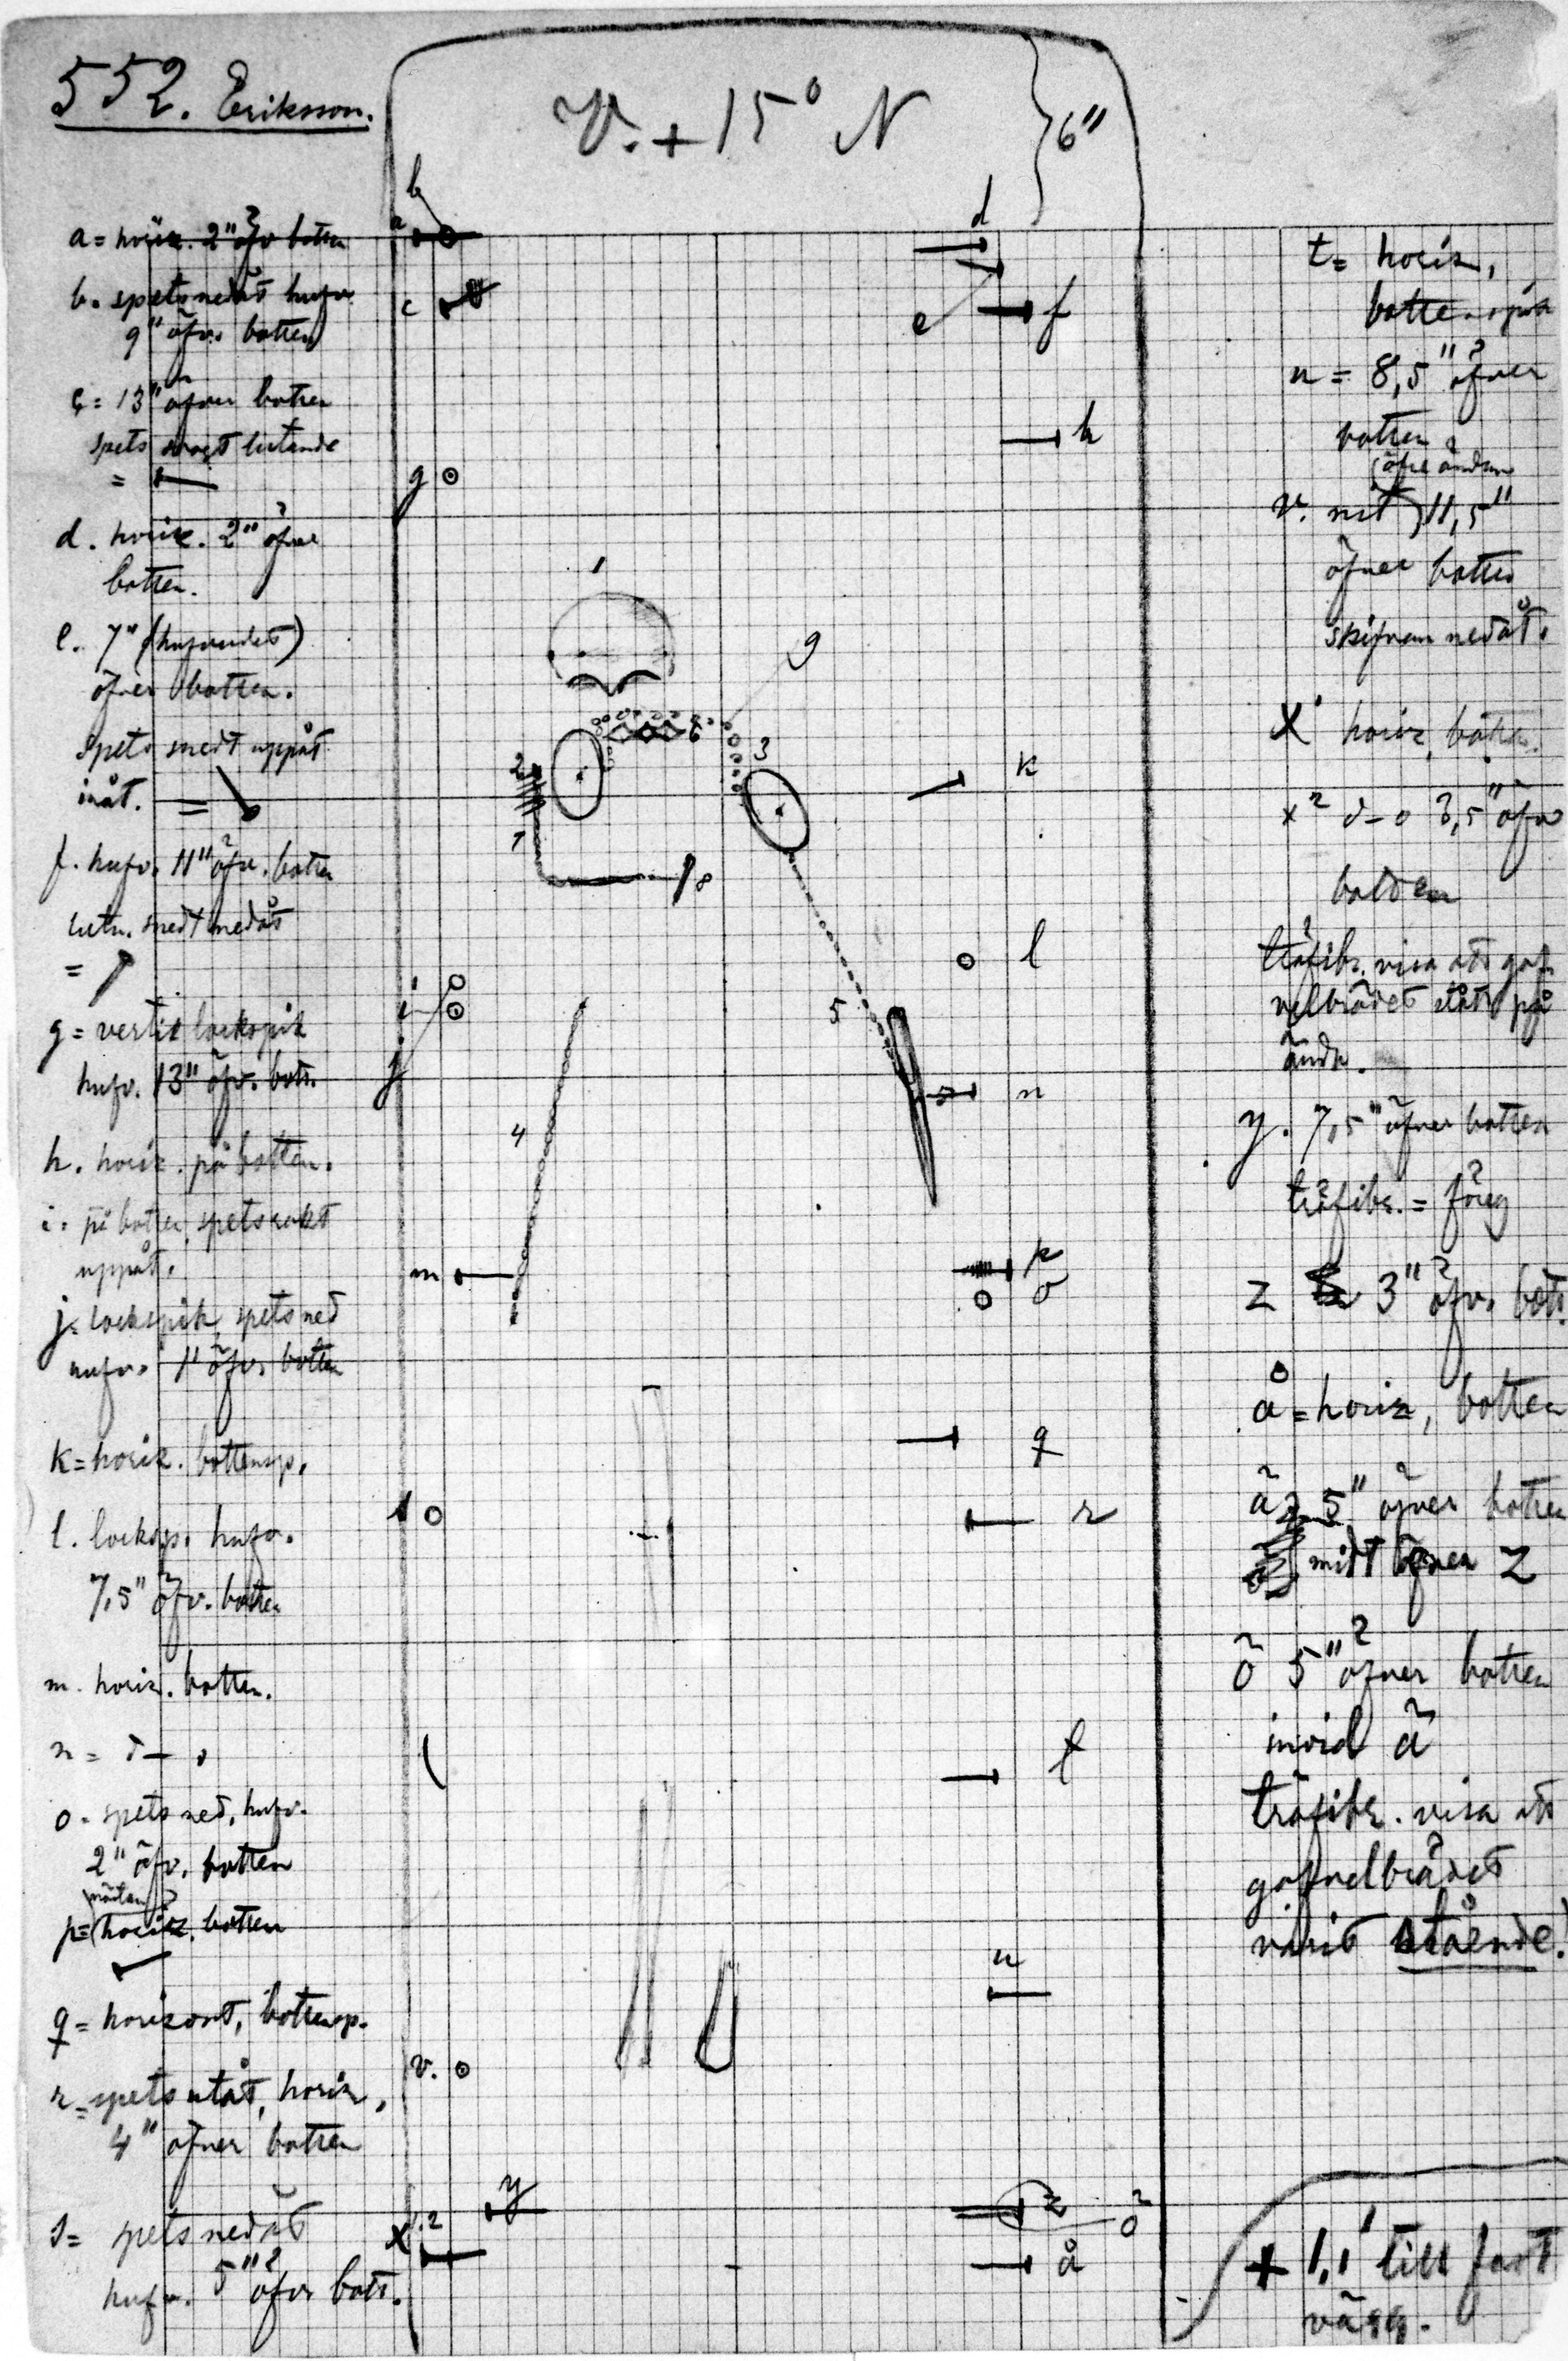 552. Eriksson.
V. + 15° N
6"
a = horiz. 2" öfv botten
b. spets nedåt hufv.
9" öfv. botten
c = 13" öfver botten
spets svagt lutande
=
d. horiz. 2" öfver
botten.
e. 7" (hufvudet)
öfver botten.
Spets snedt uppåt
inåt. =
f. hufv. 11" öfv. botten
lutn. snedt nedåt
=
g = vertik lockspik
hufv. 13" öfv. bott.
h. horiz. på botten.
i = på botten, spets rakt
uppåt.
j = lockspik, spets ned
hufv. 1" öfv. botten
k = horiz. bottensp.
l. locksp. hufv.
7,5" öfv. botten
m. horiz. botten.
n = d–o
o = spets ned, hufv.
2" öfv. botten
nästan
p = horiz. botten
q = horizont, bottensp.
r = spets utåt, horiz,
4" öfver botten
s = spets nedåt
hufv. 5" öfver bott.
b
a
d
c
e
f
h
g
1
9
6
2
3
k
7
8
l
i
j
5
n
4
m
p
o
q
s
r
t
u
v.
y
z
ö
x 1.2
å
t = horiz,
bottenspik
u = 8,5" öfver
botten
(öfre ändan
v. nit) 11,5"
öfver botten
skifvan nedåt.
x¹ horiz, botten.
x² d–o 3,5" öfv
botten
träfibr. visa att gaf-
velbrädet stått på
ända.
y. 7,5" öfver botten
träfibr. = föreg
z 3" öfv. bott.
å = horiz, botten
ä = 5" öfver botten
midt öfver z
ö 5" öfver botten
invid ä
träfibr. visa att
gafvelbrädet
varit stående!
+ 1,1' till fast
vägg.